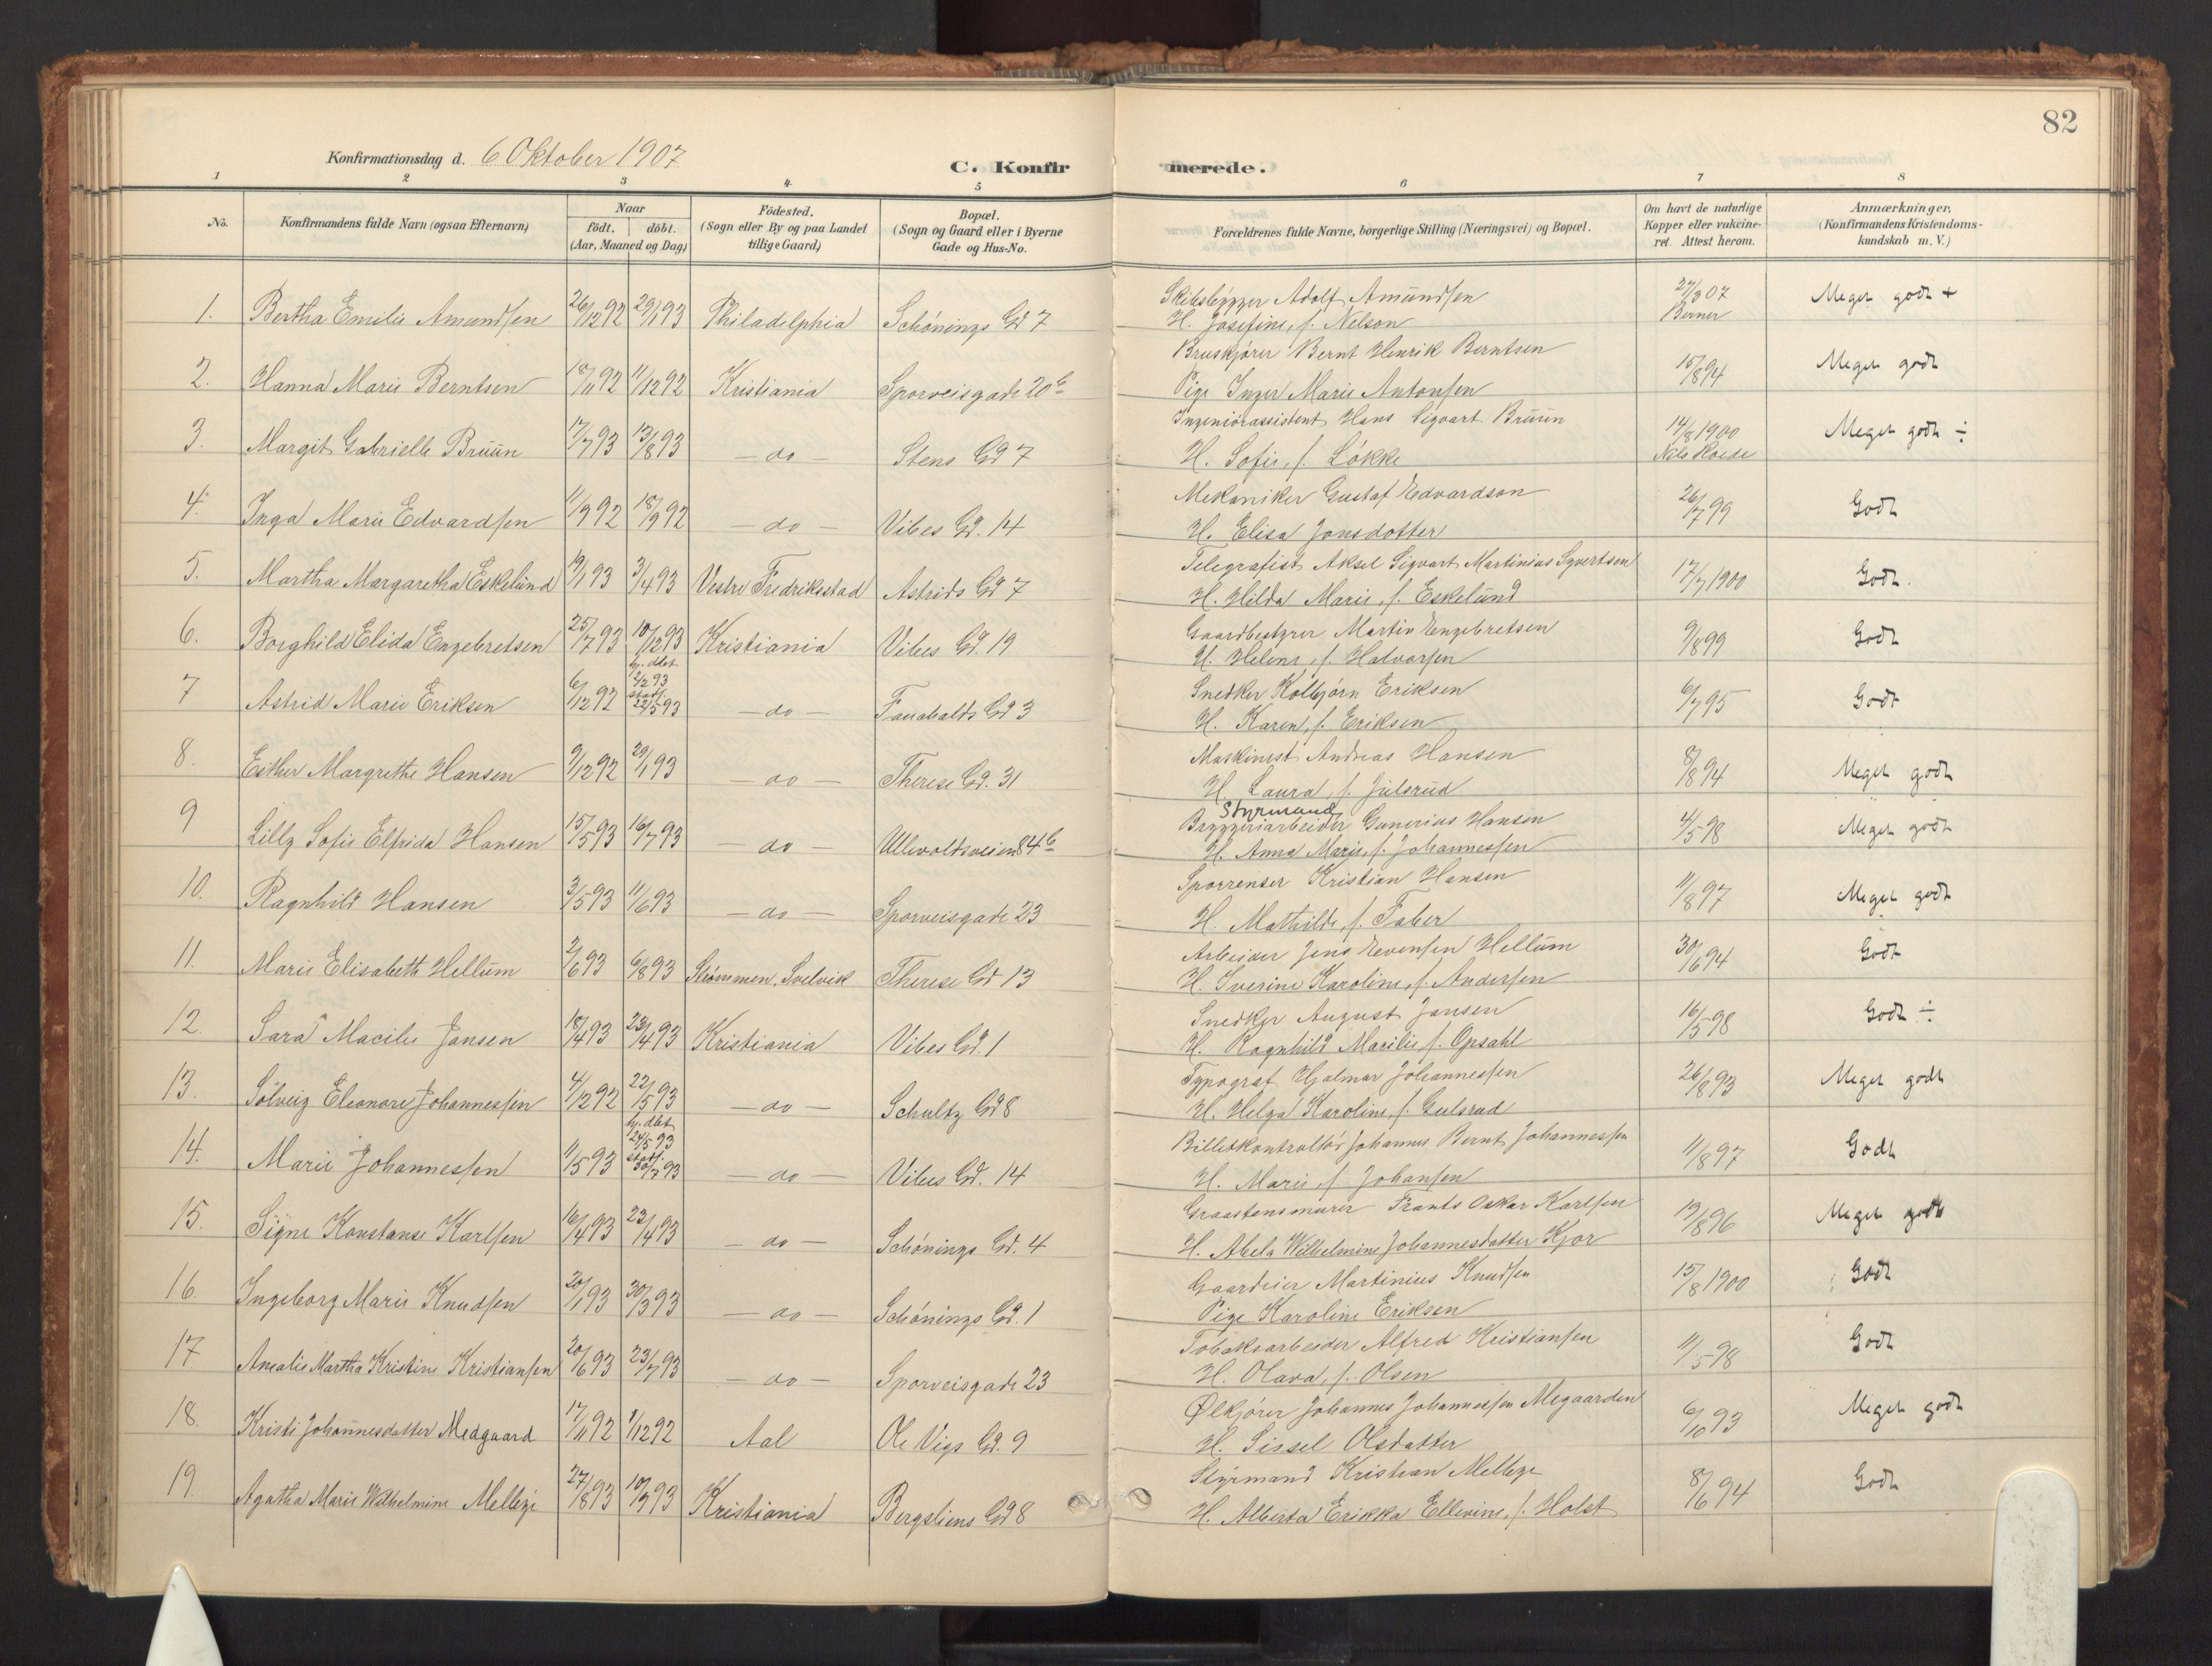 82
Konfirmationsdag d. 6 Oktober 1907
C. Konfirmerede.
1 2 3 4 5 6 7 8
No. Konfirmandens fulde Navn (ogsaa Efternavn) Naar födt. döbt. (Aar, Maaned og Dag) Födested. (Sogn eller By og paa Landet tillige Gaard) Bopæl. (Sogn og Gaard eller i Byerne Gade og Hus-No. Forældrenes fulde Navne, borgerlige Stilling (Næringsvei) og Bopæl. Om havt de naturlige Kopper eller vakcineret. Attest herom. Anmærkninger. (Konfirmandens Kristendomskundskab m. V.)
Skibsbygger Adolf Amundsen 27/3 07
1. Bertha Emilie Amundsen 26/12 92 29/1 93 Philadelphia Schönings Gd 7 H. Josefine, f. Nelson Berner Meget godt +
Bruskjører Bernt Henrik Berntsen
2. Hanna Marie Berntsen 18/11 92 11/12 92 Kristiania Sporveisgade 20 b Pige Inger Marie Antonsen 15/8 94 Meget godt
Ingeniörassistent Hans Sigvart Bruun 14/8 1900
3. Margit Gabrielle Bruun 17/7 93 13/8 93 — do — Stens Gd 7 H. Sofie, f. Løkke Nils Roede Meget godt ÷
Mekaniker Gustaf Edvardson
4. Inga Marie Edvardsen 11/9 92 18/9 92 — do — Vibes Gd. 14 H. Elisa Jonsdotter 26/7 99 Godt
Telegrafist Aksel Sigvart Martinius Syvertsen
5. Martha Margaretha Eskelund 19/1 93 3/4 93 Vestre Fredriksstad Astrids Gd 7 H. Hilda Marie, f. Eskelund 17/7 1900 Godt.
Gaardbestyrer Martin Engebretsen
6. Borghild Elida Engebretsen 25/7 93 10/12 93 Kristiania Vibes Gd. 19 H. Helene, f. Halvorsen 9/8 99 Godt
hj. dbt 12/2 93 Snedker Kolbjørn Eriksen
7 Astrid Marie Eriksen 6/12 92 stadf. 22/5 93 — do — Fauchalds Gd 3 H. Karen, f. Eriksen 6/7 95 Godt
Maskinist Andreas Hansen
8. Esther Margrethe Hansen 9/12 92 29/1 93 — do — Therese Gd. 31 H. Laura, f. Julsrud 8/8 94 Meget godt
Styrmand
Bryggeriarbeider Gunerius Hansen
9 Lilly Sofie Elfrida Hansen 15/5 93 16/7 93 — do — Ullevoldsveien 84 b H. Anna Marie, f. Johannessen 4/5 98 Meget godt
Sporrenser Kristian Hansen
10. Ragnhild Hansen 3/5 93 11/6 93 — do — Sporveisgade 23 H. Mathilde, f. Faber 11/8 97 Meget godt
Arbeider Jens Evensen Hellum
11. Marie Elisabeth Hellum 2/6 93 6/8 93 Strømmen, Svelvik Therese Gd 13 H. Iverine Karoline, f. Andersen 30/6 94 Godt
Snedker August Jansen
12. Sara Macilie Jansen 18/1 93 23/4 93 Kristiania Vibes Gd. 1 H. Ragnhild Macilie f. Opsahl 16/5 98 Godt ÷
Typograf Hjalmar Johannessen
13. Sölveig Eleonore Johannessen 4/12 92 22/5 93 — do — Schultz Gd 8 H. Helga Karoline, f. Gulsrud 26/8 93 Meget godt
hj. dbt 24/5 93 Billetkontrollör Johannes Bernt Johannessen
14. Marie Johannessen 11/5 93 stadf. 30/7 93 — do — Vibes Gd. 14 H. Marie, f. Johansen 11/8 97 Godt
Graastensmurer Frants Oskar Karlsen
15. Signe Konstanse Karlsen 16/4 93 23/4 93 — do — Schönings Gd. 4 H. Abela Wilhelmine Johannesdatter Kjor 19/8 96 Meget godt
Gaardeier Martinius Knudsen
16. Ingeborg Marie Knudsen 20/1 93 30/3 93 — do — Schönings Gd. 1 Pige Karoline Eriksen 15/8 1900 Godt
Tobaksarbeider Alfred Kristiansen
17 Amalie Martha Kristine Kristiansen 20/6 93 23/7 93 — do — Sporveisgade 23 H. Olava, f. Olsen 11/5 98 Godt
Ølkjører Johannes Johannessen Megaarden
18. Kristi Johannesdatter Medgaard 17/11 92 1/12 92 Aal Ole Vigs Gd. 9 H. Sissel Olsdatter 6/10 93 Meget godt
Styrmand Kristian Mellbye
19. Agatha Marie Wilhelmine Mellbye 27/8 93 10/9 93 Kristiania Bergsliens Gd 8 H. Alberta Erikka Ellevine, f. Holst 8/6 94 Godt